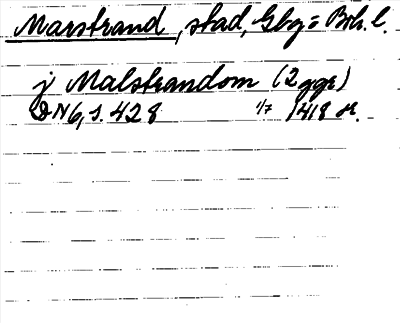 Marstrand, stad, Gbg o Boh. l.
j Malstrandom (2 ggr)
DN 6, s. 428 1/7 1418 or.